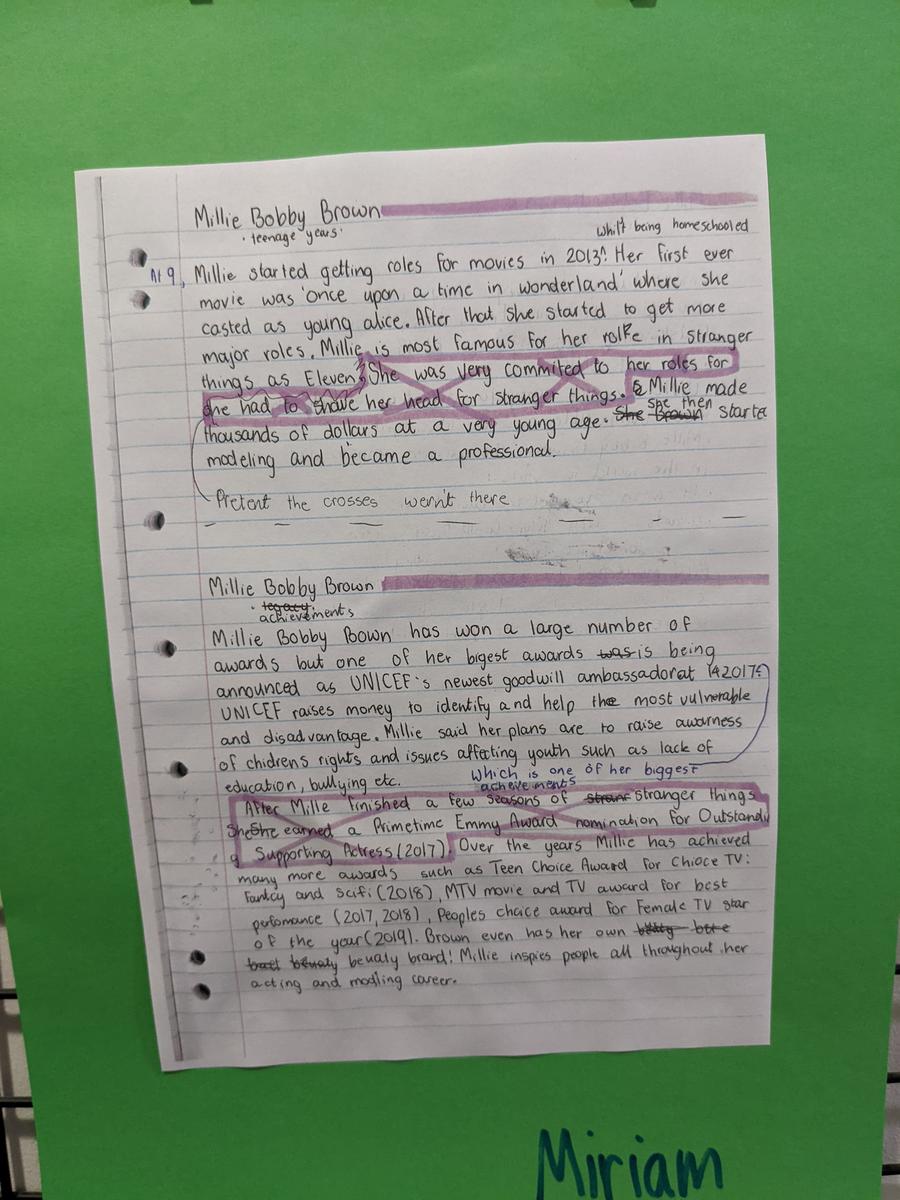 Millie Bobby Brown
· teenage years·
whilt being homeschooled
At 9, Millie started getting roles for movies in 2013^. Her first ever
movie was 'once upon a time in wonderland' where she
casted as young alice. After that she started to get more
major roles. Millie is most famous for her rolle in stranger
things as Eleven. She was very commited to her roles for
she had to shave her head for stranger things. Millie made
thousands of dollars at a very young age. She Brown she then starte
modeling and became a professional.
Pretent the crosses wern't there
Millie Bobby Brown
· legacy·
achievements
Millie Bobby Bown has won a large number of
awards but one of her bigest awards was is being
announced as UNICEF's newest goodwill ambassador at 14 2017
UNICEF raises money to identify and help the most vulnerable
and disadvantage. Millie said her plans are to raise awarness
of chidrens rights and issues affecting youth such as lack of
education, bullying etc.
which is one of her biggest
acheivements
After Mille finished a few seasons of stranger things
She She earned a Primetime Emmy Award nomination for Outstandi
g Supporting Actress (2017). Over the years Millie has achieved
many more awards such as Teen Choice Award for Chioce TV:
Fantcy and Scifi (2018), MTV movie and TV award for best
perfomance (2017, 2018), Peoples choice award for Female TV star
of the year (2019). Brown even has her own
beuaty brand! Millie inspies people all throughout her
acting and modling career.
Miriam